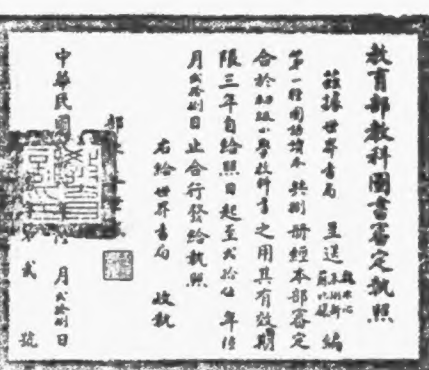 教育部教科圖書審定執照
茲據世界書局 呈送 編
第一種國語讀本 捌册經本部審定
合於初級小學教科書之用其有效期
限三年自給照日起至貳拾 年 
月貳拾捌日止合行發給執照
右給世界書局 收執
部
中華民國 月貳拾捌日
貳 號